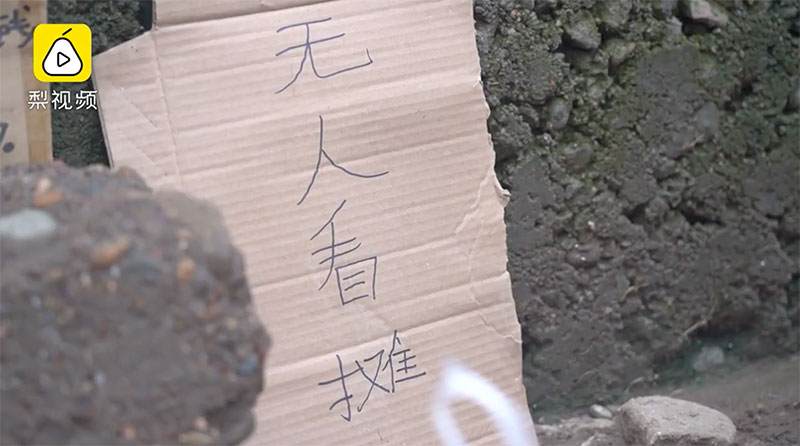 梨视频
无人看摊